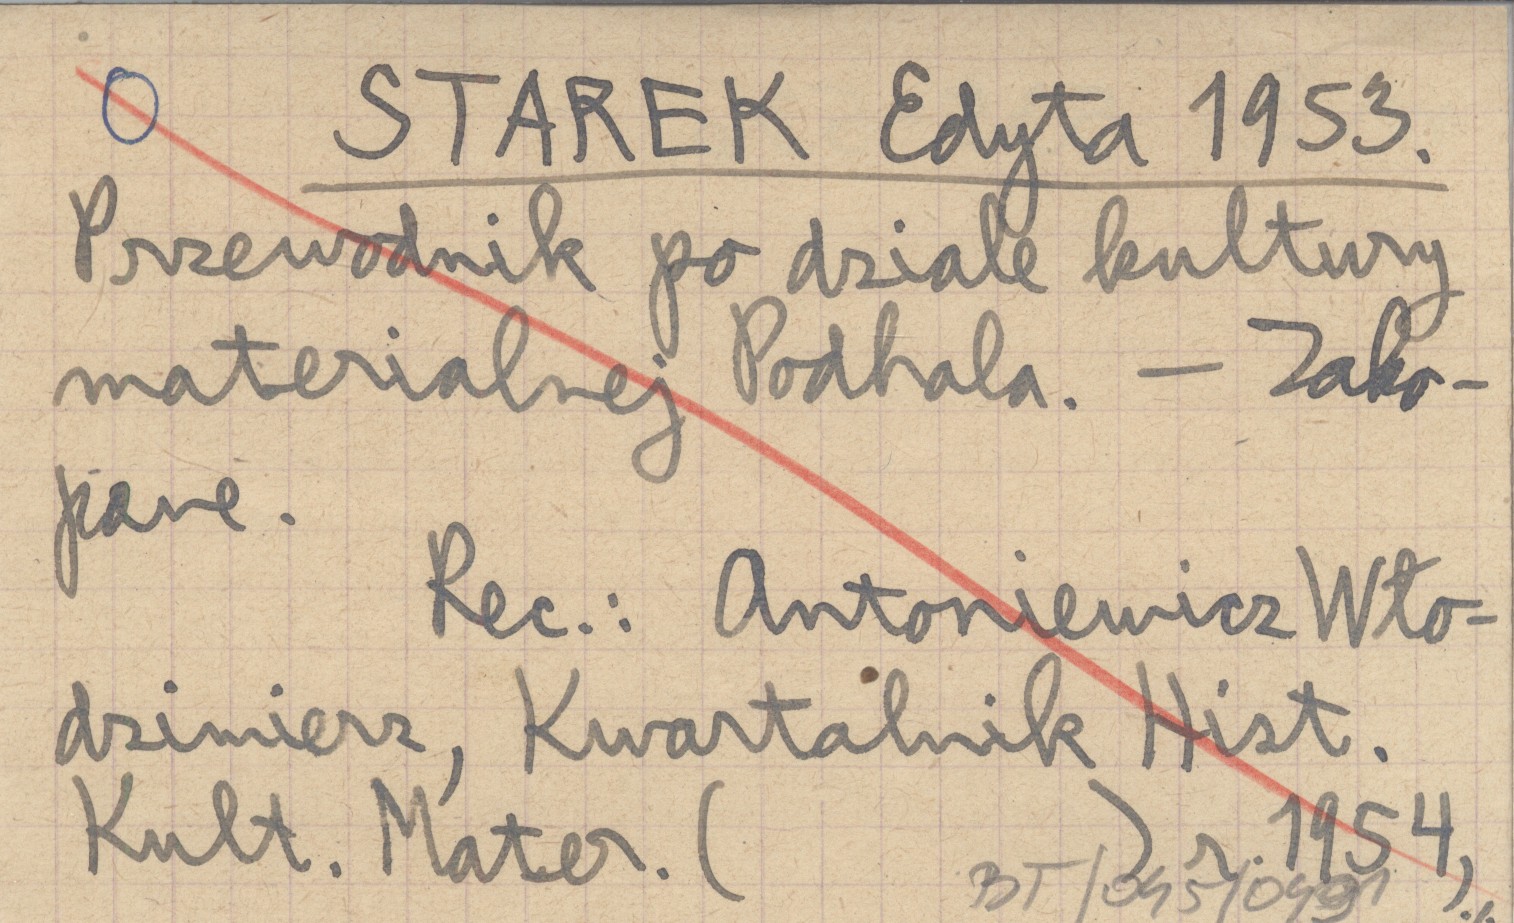 O STAREK Edyta 1953.
Przewodnik po dziale kultury
materialnej Podhala. — Zako-
pane.
Rec.: Antoniewicz Wło-
dzimierz, Kwartalnik Hist.
Kult. Mater. ( ) r. 1954,
BT/045/0491
./.